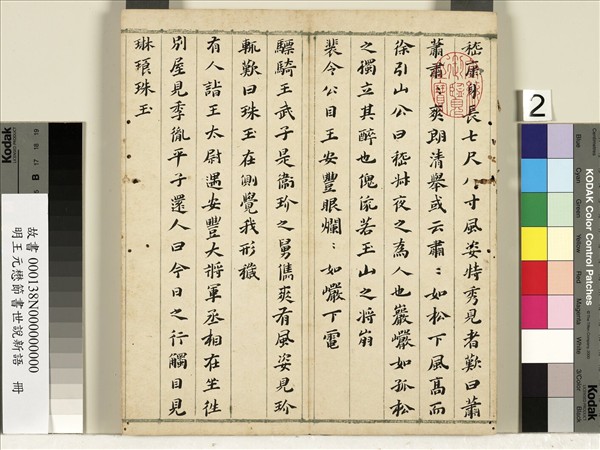 嵇康身長七尺八寸風姿特秀見者歎曰蕭
蕭肅〻爽朗清舉或云肅〻如松下風高而
徐引山公曰嵇叔夜之為人也巖巖如孤松
之獨立其醉也傀俄若玉山之將崩
裴令公目王安豐眼爛〻如巖下電
驃騎王武子是衛玠之舅儁爽有風姿見玠
輒歎曰珠玉在側覺我形穢
有人詣王太尉遇安豐大將軍丞相在坐往
別屋見季胤平子還人曰今日之行觸目見
琳琅珠玉
故書 000138N000000000
明王元懋節書世說新語 冊
2
KODAK Color Control Patches
Blue
Cyan
Green
Yellow
Red
Magenta
White
3/Color
Black
Kodak
Kodak